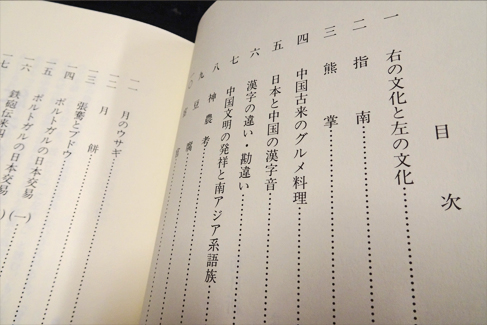 目次
一 右の文化と左の文化
二 指南
三 熊掌
四 中国古来のグルメ料理
五 日本と中国の漢字音
六 漢字の違い・勘違い
七 中国文明の発祥と南アジア系語族
八 神農考
九 豆腐
一〇
一一 月のウサギ
一二 月餅
一三 張騫とブドウ
一四 ポルトガルの日本交易
一五 ポルトガルの日本交易(一)
一六 鉄砲伝来
一七